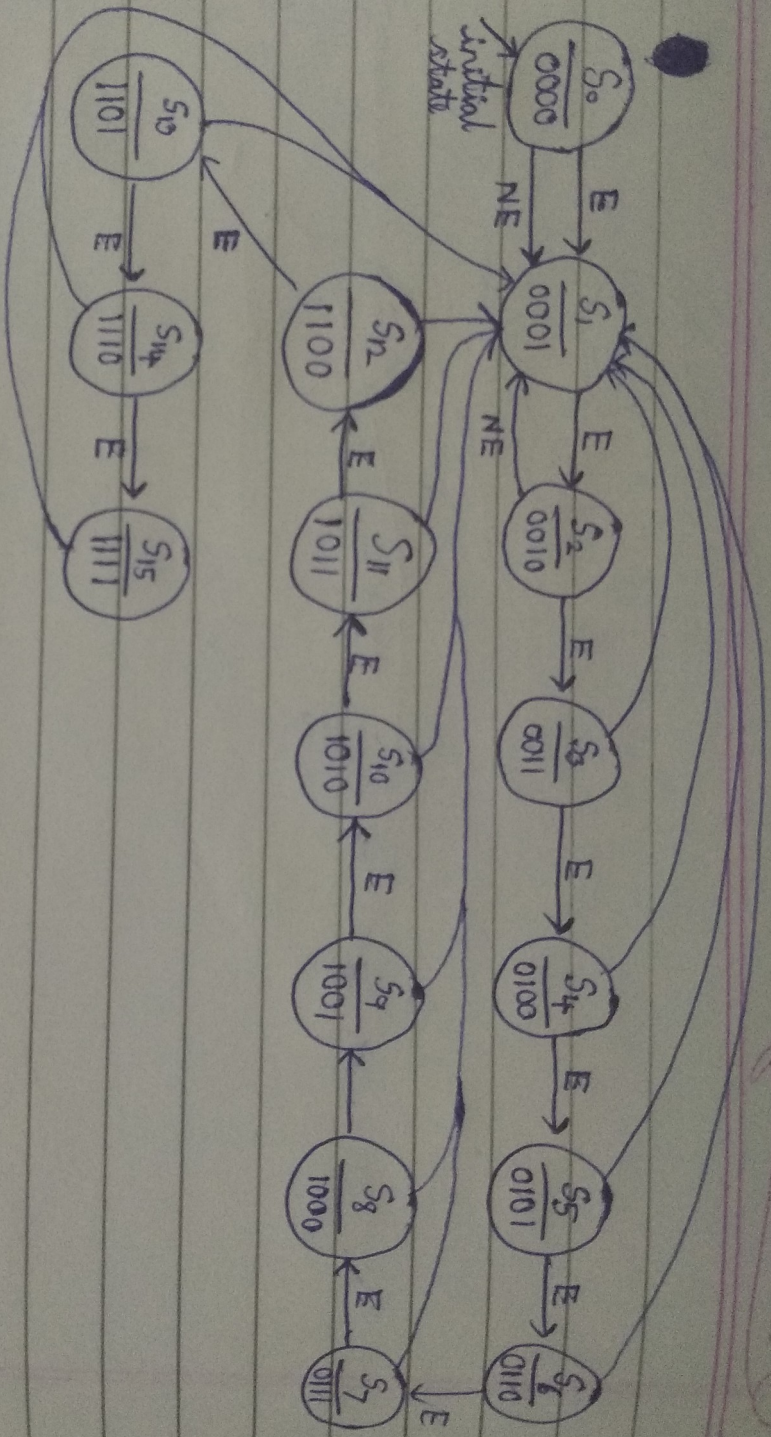 S0
0000
initial
state
E
NE
S1
0001
E
NE
S2
0010
E
S3
0011
E
S4
0100
E
S5
0101
E
S6
0110
E
S12
1100
E
S11
1011
E
S10
1010
E
S9
1001
S8
1000
E
S7
0111
E
S10
1101
E
S14
1110
E
S15
1111